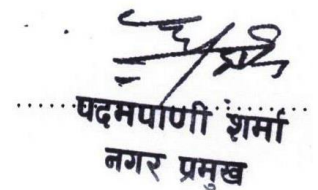 पदमपाणी शर्मा
नगर प्रमुख